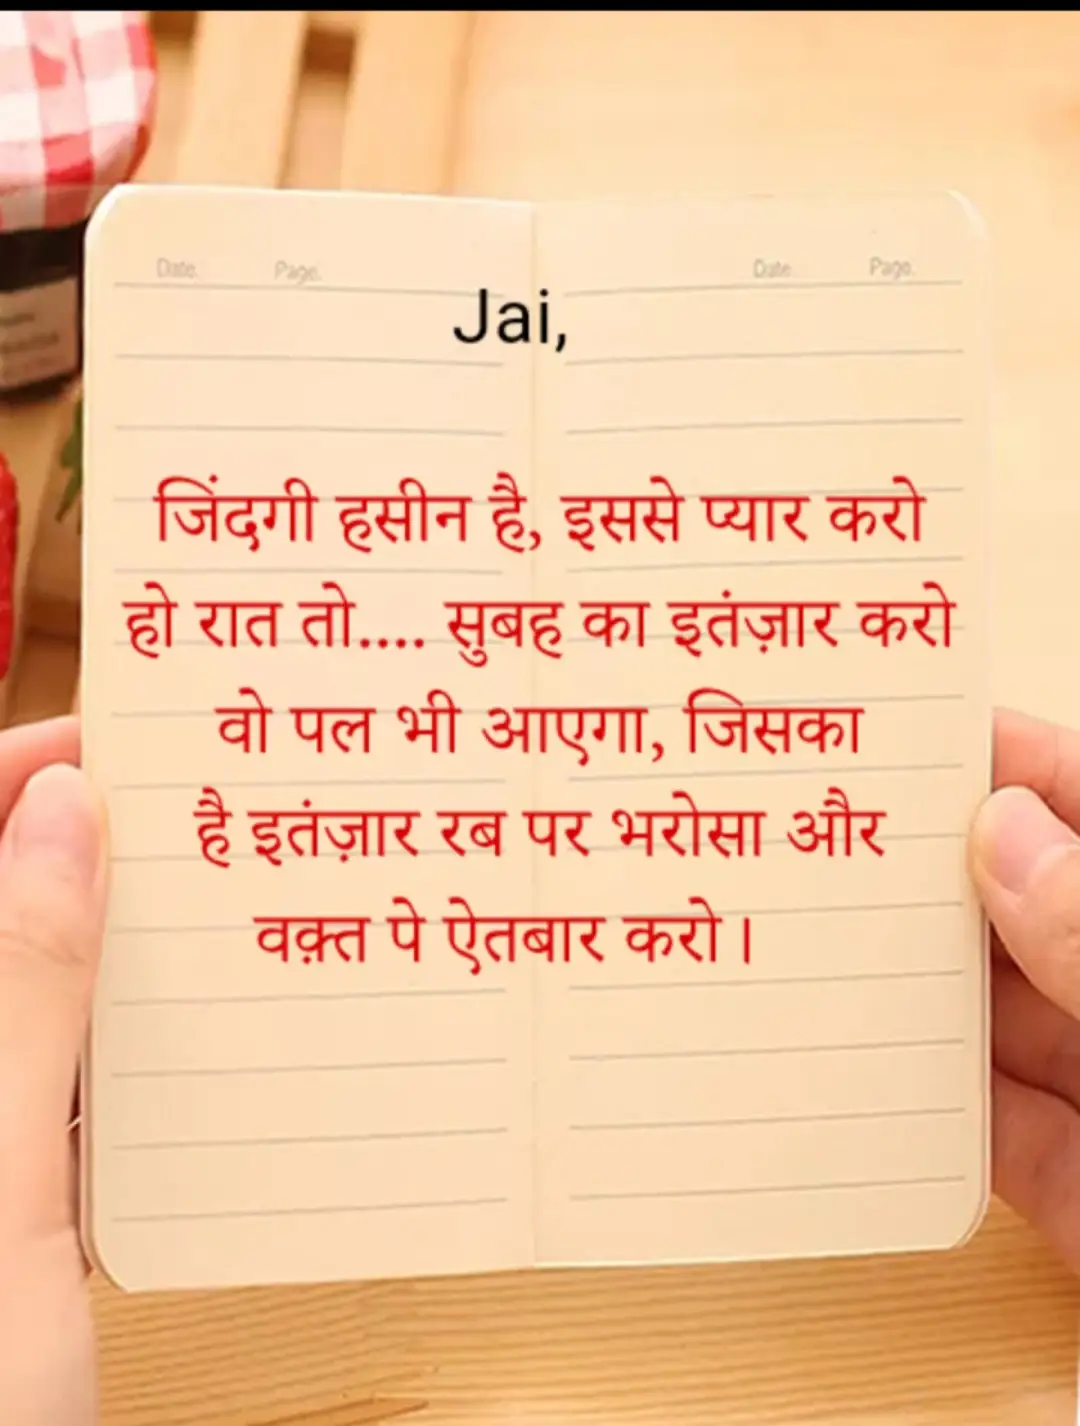 Date. Page. Date. Page.
Jai,
जिंदगी हसीन है, इससे प्यार करो
हो रात तो.... सुबह का इतंज़ार करो
वो पल भी आएगा, जिसका
है इतंज़ार रब पर भरोसा और
वक़्त पे ऐतबार करो।